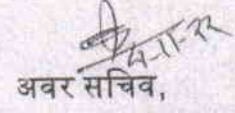 4-11-22
अवर सचिव,